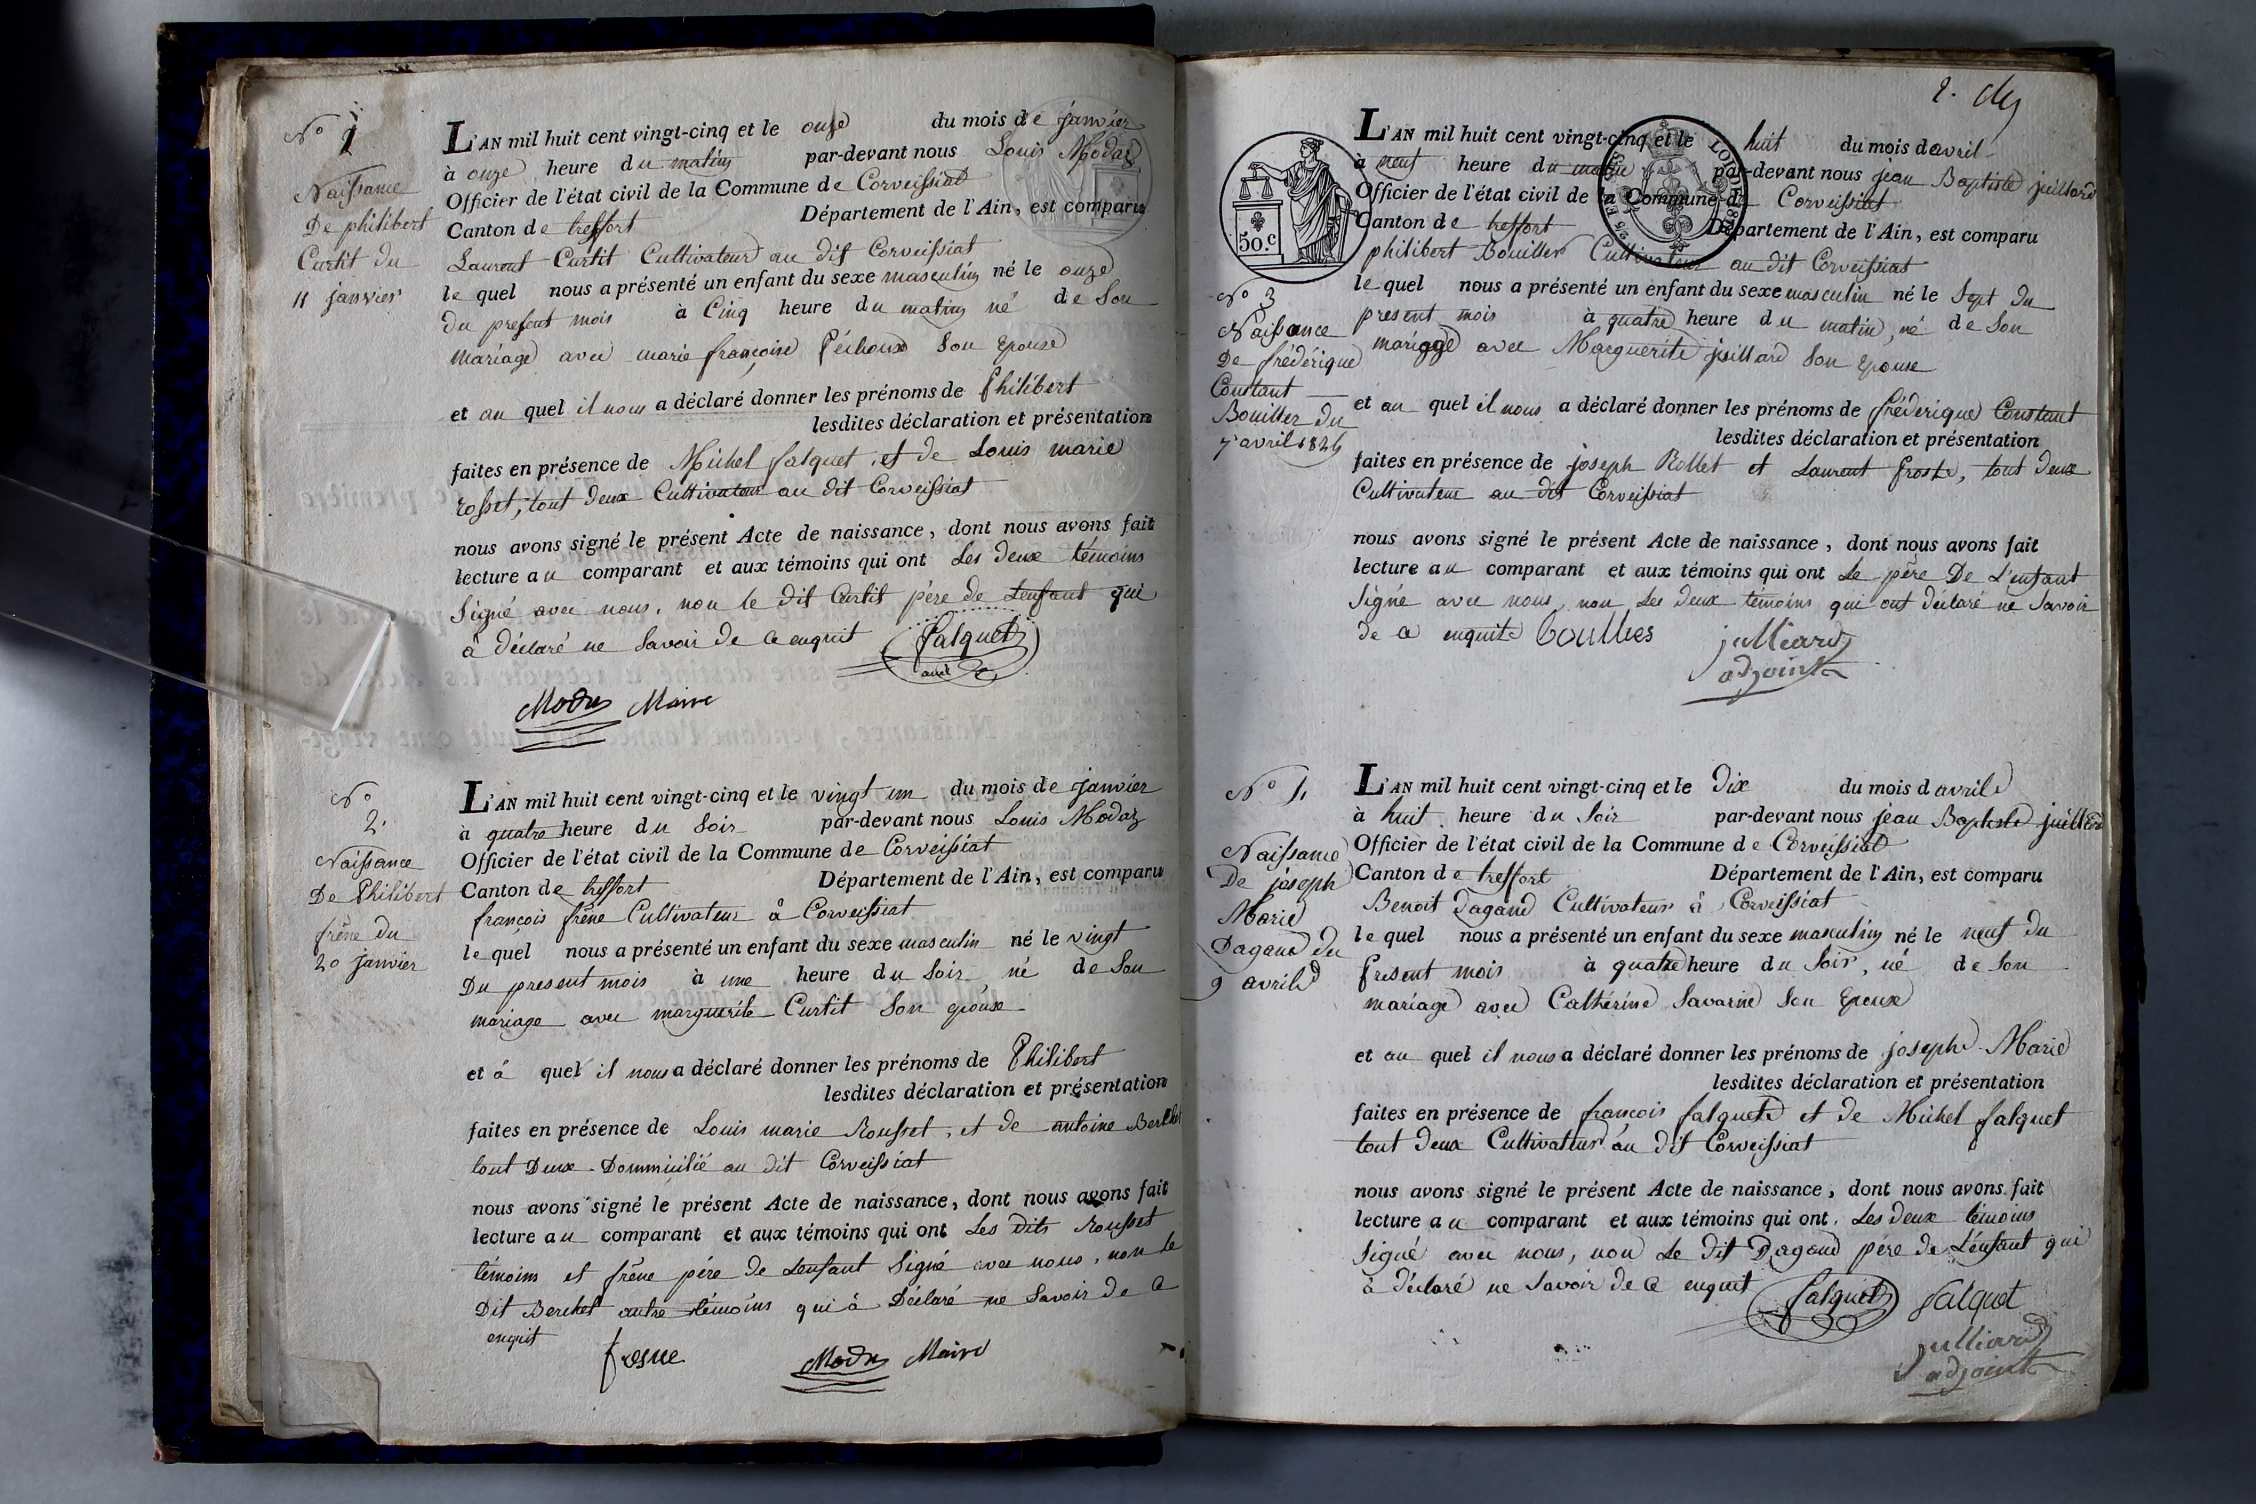 N° 1
Naissance
De philibert
Curtit du
11 janvier
L'AN mil huit cent vingt-cinq et le onze du mois de janvier
à onze heure du matin par-devant nous Louis Modas
Officier de l'état civil de la Commune de Corveissiat
Canton de treffort Département de l'Ain, est comparu
Laurent Curtit Cultivateur au dit Corveissiat
le quel nous a présenté un enfant du sexe masculin né le onze
du present mois à Cinq heure du matin né de Son
mariage avec marie françoise Péchoux Son Epouse
et au quel il nous a déclaré donner les prénoms de Philibert
lesdites déclaration et présentation
faites en présence de Michel falquet, et de Louis marie
rosset, tout deux Cultivateur au dit Corveissiat
nous avons signé le présent Acte de naissance, dont nous avons fait
lecture au comparant et aux témoins qui ont Les deux témoins
Signé avec nous, non le dit Curtit père de Lenfant qui
à déclaré ne Savoir de ce enquit falquet
Modas Maire
N°
2.
Naissance
De Philibert
frêne du
20 janvier
L'AN mil huit cent vingt-cinq et le vingt un du mois de janvier
à quatre heure du Soir par-devant nous Louis Modaz
Officier de l'état civil de la Commune de Corveissiat
Canton de treffort Département de l'Ain, est comparu
françois frêne Cultivateur à Corveissiat
le quel nous a présenté un enfant du sexe masculin né le vingt
Du present mois à une heure du Soir né de Son
mariage avec marguerite Curtit Son epouse
et à quel il nous a déclaré donner les prénoms de Philibert
lesdites déclaration et présentation
faites en présence de Louis marie Rousset, et de antoine Berchet
tout Deux Dommicilié au dit Corveissiat
nous avons signé le présent Acte de naissance, dont nous avons fait
lecture au comparant et aux témoins qui ont Les dits Rousset
témoins et frêne père de Lenfant Signé avec nous, non le
Dit Berchet autre témoins qui à Déclaré ne Savoir de ce
enquit
fresne Modas Maire
2.
50.c
L'AN mil huit cent vingt-cinq et le huit du mois d avril
à neuf heure du matin par-devant nous jean Baptiste juillard
Officier de l'état civil de la Commune de Corveissiat
Canton de treffort Département de l'Ain, est comparu
philibert Bouiller Cultivateur au dit Corveissiat
le quel nous a présenté un enfant du sexe masculin né le Sept du
present mois à quatre heure du matin, né de Son
mariage avec Marguerite juillard Son Epouse
N° 3
Naissance
De fréderique
Constant
Bouiller du
7 avril 1825
et au quel il nous a déclaré donner les prénoms de fréderique Constant
lesdites déclaration et présentation
faites en présence de joseph Rollet et Laurent froste, tout deux
Cultivateur au dit Corveissiat
nous avons signé le présent Acte de naissance, dont nous avons fait
lecture au comparant et aux témoins qui ont Le père De L'enfant
Signé avec nous, non Les deux temoins qui ont déclaré ne Savoir
de ce enquite boullies julliard
adjoint
N° 4
Naissance
De joseph
Marie
Dagand du
9 avril
L'AN mil huit cent vingt-cinq et le Dix du mois d avril
à huit heure du Soir par-devant nous jean Baptiste juillard
Officier de l'état civil de la Commune de Corveissiat
Canton de treffort Département de l'Ain, est comparu
Benoit Dagand Cultivateur à Corveissiat
le quel nous a présenté un enfant du sexe masculin né le neuf du
present mois à quatre heure du Soir, né de Son
mariage avec Cathérine Savarin Son Epouse
et au quel il nous a déclaré donner les prénoms de joseph Marie
lesdites déclaration et présentation
faites en présence de françois falquet et de Michel falquet
tout deux Cultivateur au dit Corveissiat
nous avons signé le présent Acte de naissance, dont nous avons fait
lecture au comparant et aux témoins qui ont Les deux témoins
Signé avec nous, non Le dit Dagand père de L'enfant qui
à déclaré ne Savoir de ce enquit falquet falquet
julliard
adjoint